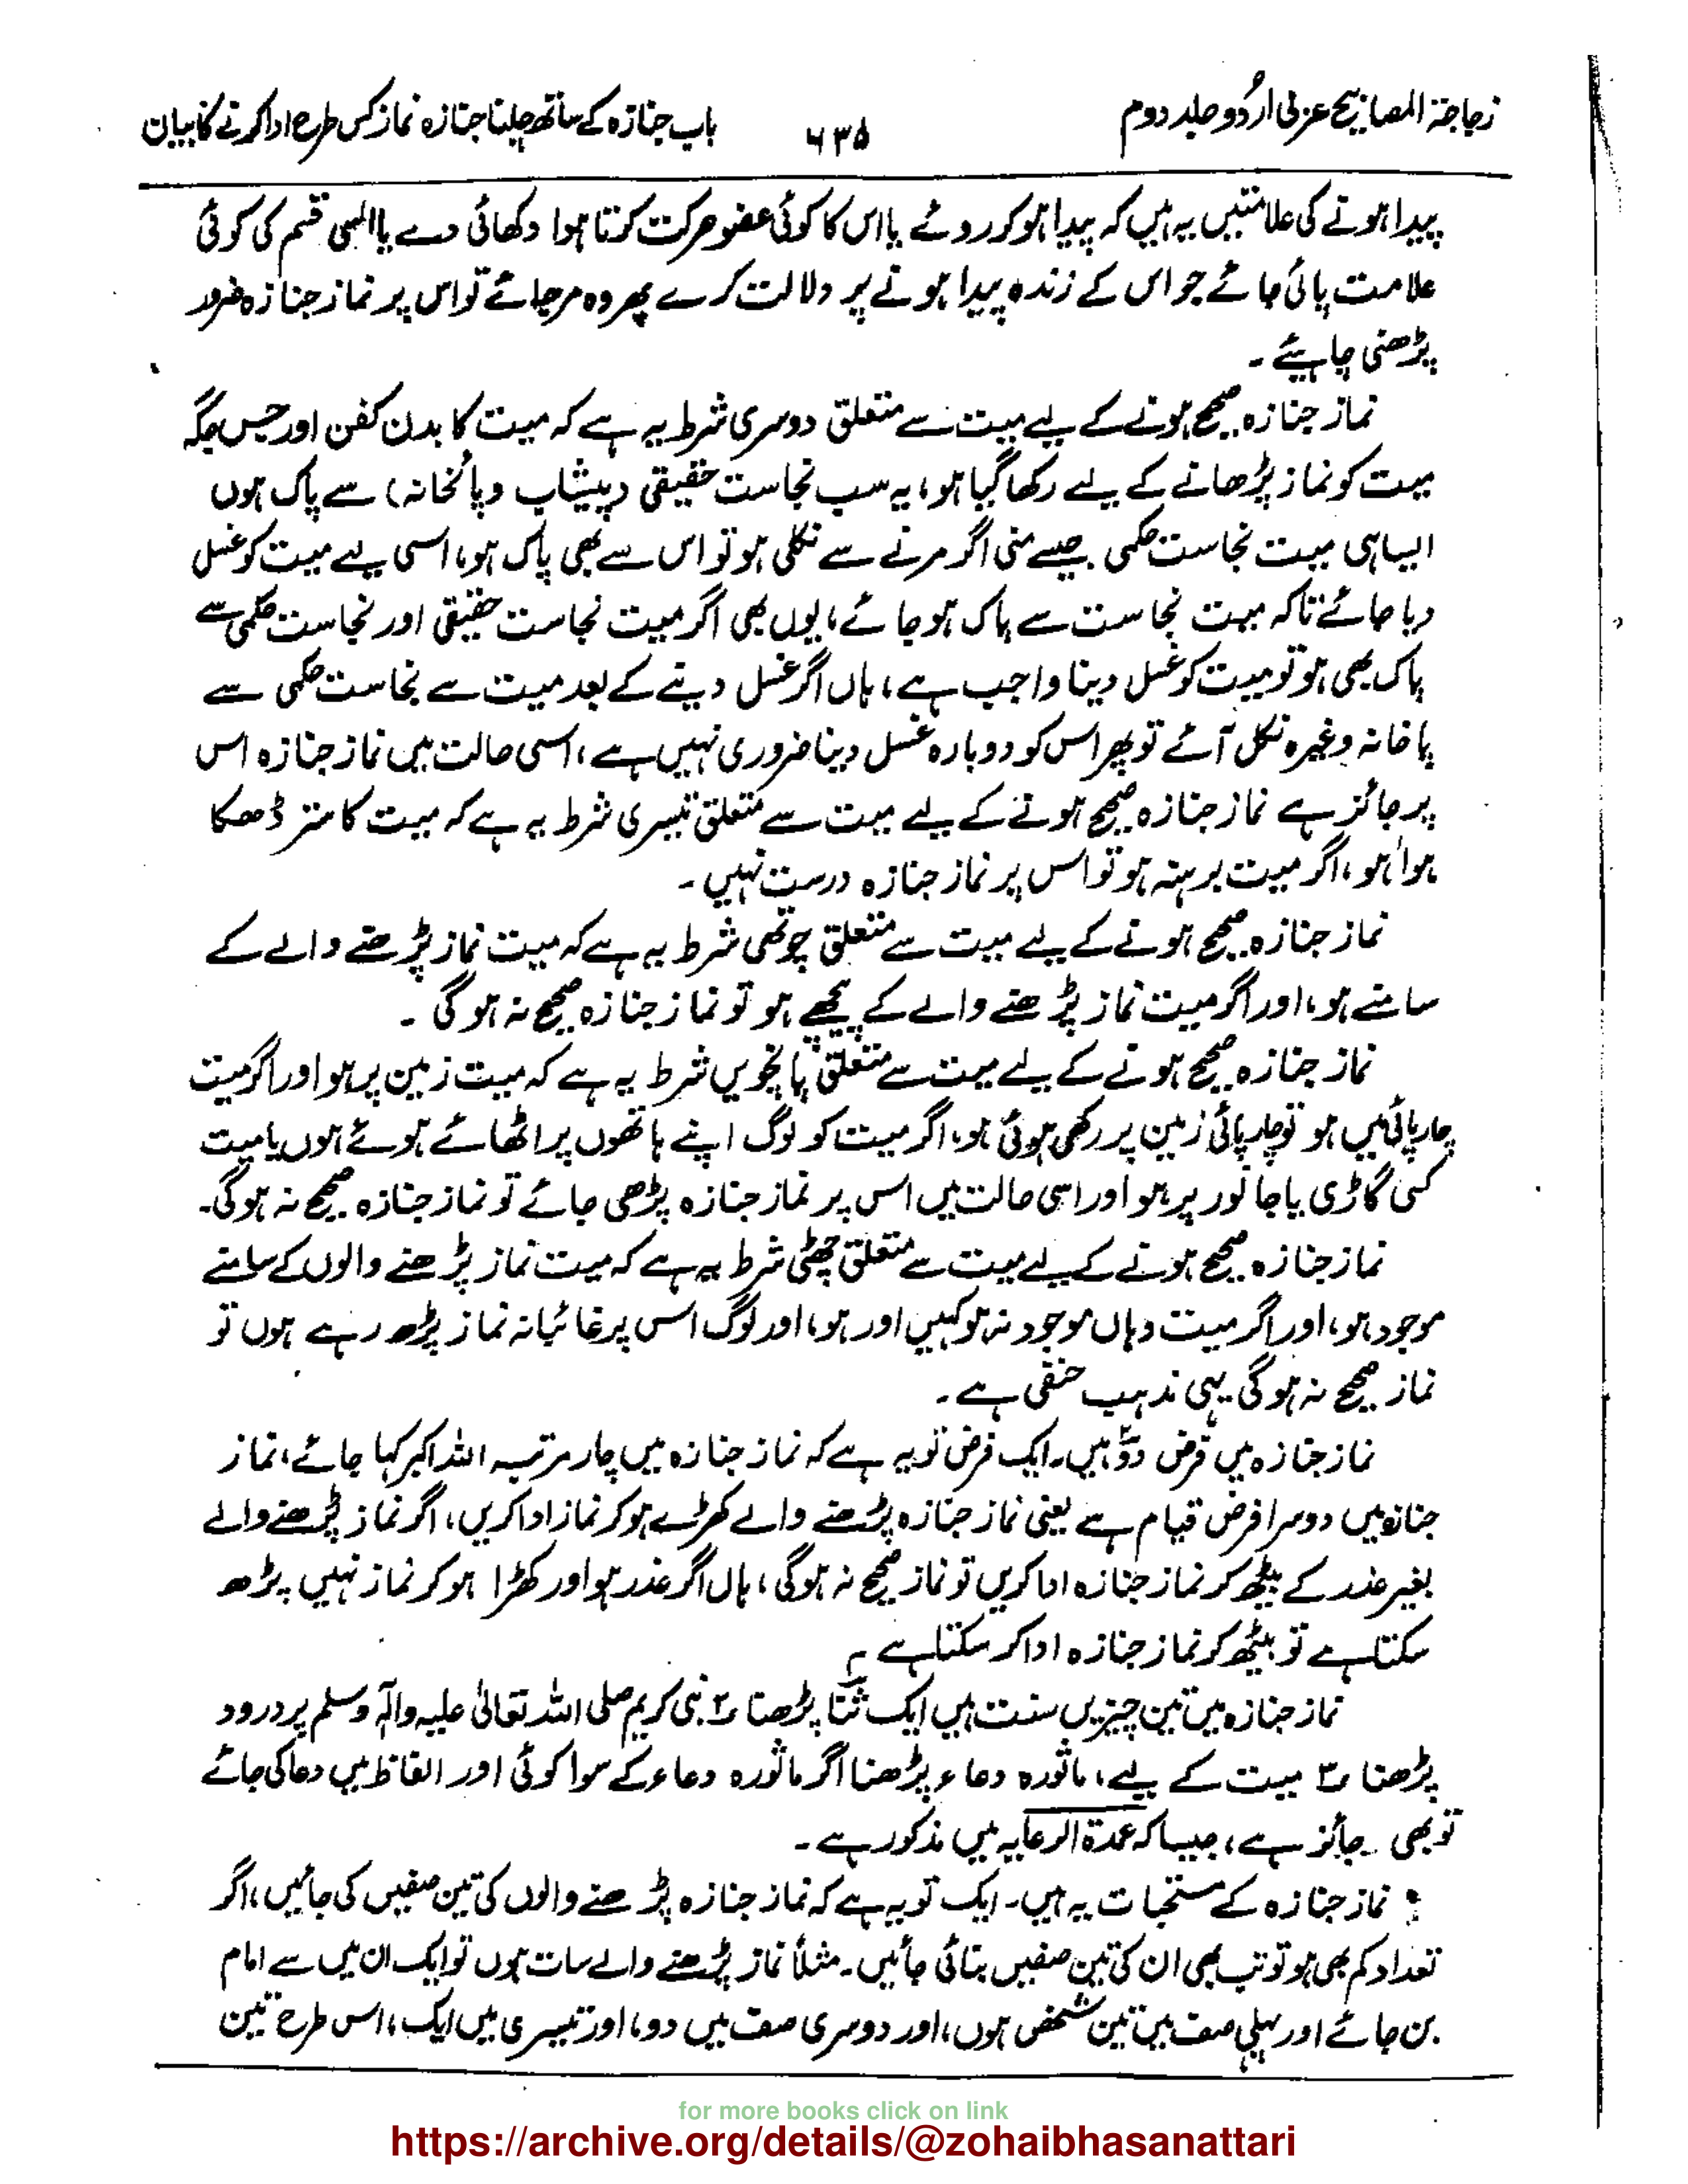 زجاجۃ المصابیح عربی اردو جلد دوم
۶۳۵
باب جنازہ کے ساتھ چلنا جنازہ نماز کس طرح ادا کرنے کا بیان
پیدا ہونے کی علامتیں یہ ہیں کہ پیدا ہو کر روئے یا اس کا کوئی عضو حرکت کرتا ہوا دکھائی دے یا السی قسم کی کوئی
علامت پائی جائے جو اس کے زندہ پیدا ہونے پر دلالت کرے پھر وہ مر جائے تو اس پر نماز جنازہ ضرور
پڑھنی چاہیئے ۔
نماز جنازہ صحیح ہونے کے لیے میت سے متعلق دوسری شرط یہ ہے کہ میت کا بدن کفن اور جس جگہ
میت کو نماز پڑھانے کے لیے رکھا گیا ہو، یہ سب نجاست حقیقی (پیشاب و پائخانہ) سے پاک ہوں
ایسا ہی میت نجاست حکمی جیسے منی اگر مرنے سے نکلی ہو تو اس سے بھی پاک ہو، اسی لیے میت کو غسل
دیا جائے تاکہ میت نجاست سے پاک ہو جائے، یوں بھی اگر میت نجاست حقیقی اور نجاست حکمی سے
پاک بھی ہو تو میت کو غسل دینا واجب ہے، ہاں اگر غسل دینے کے بعد میت سے نجاست حکمی سے
پاخانہ وغیرہ نکل آئے تو پھر اس کو دوبارہ غسل دینا ضروری نہیں ہے، اسی حالت میں نماز جنازہ اس
پر جائز ہے نماز جنازہ صحیح ہونے کے لیے میت سے متعلق تیسری شرط یہ ہے کہ میت کا ستر ڈھکا
ہوا ہو، اگر میت برہنہ ہو تو اس پر نماز جنازہ درست نہیں ۔
نماز جنازہ صحیح ہونے کے لیے میت سے متعلق چوتھی شرط یہ ہے کہ میت نماز پڑھنے والے کے
سامنے ہو، اور اگر میت نماز پڑھنے والے کے پیچھے ہو تو نماز جنازہ صحیح نہ ہوگی ۔
نماز جنازہ صحیح ہونے کے لیے میت سے متعلق پانچویں شرط یہ ہے کہ میت زمین پر ہو اور اگر میت
چارپائی میں ہو تو چارپائی زمین پر رکھی ہوئی ہو، اگر میت کو لوگ اپنے ہاتھوں پر اٹھائے ہوئے ہوں یا میت
کسی گاڑی یا جانور پر ہو اور اسی حالت میں اس پر نماز جنازہ پڑھی جائے تو نماز جنازہ صحیح نہ ہوگی۔
نماز جنازہ صحیح ہونے کے لیے میت سے متعلق چھٹی شرط یہ ہے کہ میت نماز پڑھنے والوں کے سامنے
موجود ہو، اور اگر میت وہاں موجود نہ ہو کہیں اور ہو، اور لوگ اس پر غائبانہ نماز پڑھ رہے ہوں تو
نماز صحیح نہ ہوگی یہی مذہب حنفی ہے ۔
نماز جنازہ میں فرض دو ہیں۔ ایک فرض تو یہ ہے کہ نماز جنازہ میں چار مرتبہ اللہ اکبر کہا جائے، نماز
جنازہ میں دوسرا فرض قیام ہے یعنی نماز جنازہ پڑھنے والے کھڑے ہو کر نماز ادا کریں، اگر نماز پڑھنے والے
بغیر عذر کے بیٹھ کر نماز جنازہ ادا کریں تو نماز صحیح نہ ہوگی، ہاں اگر عذر ہو اور کھڑا ہو کر نماز نہیں پڑھ
سکتا ہے تو بیٹھ کر نماز جنازہ ادا کر سکتا ہے ۔
نماز جنازہ میں تین چیزیں سنت ہیں ایک ثنا پڑھنا ۲ نبی کریم صلی اللہ تعالیٰ علیہ والہٖ وسلم پر درود
پڑھنا ۳ میت کے لیے، ماثورہ دعاء پڑھنا اگر ماثورہ دعاء کے سوا کوئی اور الفاظ میں دعا کی جائے
تو بھی جائز ہے، جیسا کہ عمدۃ الرعایہ میں مذکور ہے ۔
نماز جنازہ کے مستحبات یہ ہیں۔ ایک تو یہ ہے کہ نماز جنازہ پڑھنے والوں کی تین صفیں کی جائیں، اگر
تعداد کم بھی ہو تو تب بھی ان کی تین صفیں بنائی جائیں۔ مثلاً نماز پڑھنے والے سات ہوں تو ایک ان میں سے امام
بن جائے اور پہلی صف میں تین شخص ہوں، اور دوسری صف میں دو، اور تیسری میں ایک، اس طرح تین
for more books click on link
https://archive.org/details/@zohaibhasanattari